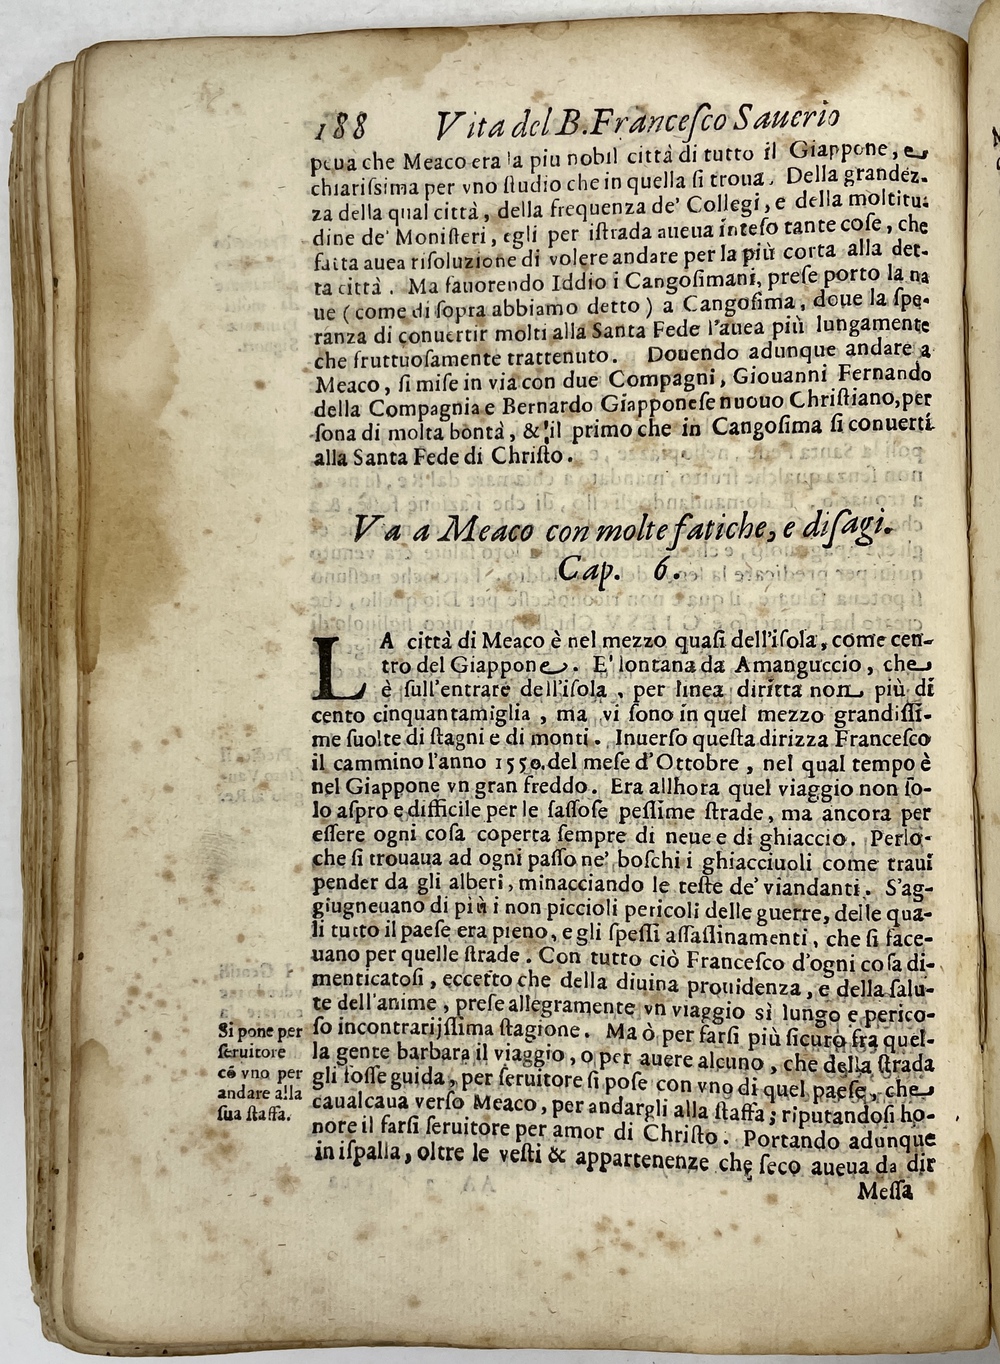 188 Vita del B. Franceſco Sauerio
peua che Meaco era la piu nobil città di tutto il Giappone, e
chiariſsima per vno ſtudio che in quella ſi troua. Della grandez-
za della qual città, della frequenza de' Collegi, e della moltitu-
dine de' Moniſteri, egli per iſtrada aueua inteſo tante coſe, che
fatta auea riſoluzione di volere andare per la più corta alla det-
ta città. Ma fauorendo Iddio i Cangoſimani, preſe porto la na
ue (come di ſopra abbiamo detto) a Cangoſima, doue la ſpe-
ranza di conuertir molti alla Santa Fede l'auea più lungamente
che fruttuoſamente trattenuto. Douendo adunque andare a
Meaco, ſi miſe in via con due Compagni, Giouanni Fernando
della Compagnia e Bernardo Giapponeſe nuouo Chriſtiano, per
ſona di molta bontà, & il primo che in Cangoſima ſi conuertì
alla Santa Fede di Chriſto.
Va a Meaco con molte fatiche, e diſagi.
Cap. 6.
LA città di Meaco è nel mezzo quaſi dell'iſola, come cen-
tro del Giappone. E' lontana da Amanguccio, che
è ſull'entrare dell'iſola, per linea diritta non più di
cento cinquantamiglia, ma vi ſono in quel mezzo grandiſſi-
me ſuolte di ſtagni e di monti. Inuerſo queſta dirizza Franceſco
il cammino l'anno 1550. del meſe d'Ottobre, nel qual tempo è
nel Giappone vn gran freddo. Era allhora quel viaggio non ſo-
lo aſpro e difficile per le ſaſſoſe peſſime ſtrade, ma ancora per
eſſere ogni coſa coperta ſempre di neue e di ghiaccio. Perlo-
che ſi trouaua ad ogni paſſo ne' boſchi i ghiacciuoli come traui
pender da gli alberi, minacciando le teſte de' viandanti. S'ag-
giugneuano di più i non piccioli pericoli delle guerre, delle qua-
li tutto il paeſe era pieno, e gli ſpeſſi aſſaſſinamenti, che ſi face-
uano per quelle ſtrade. Con tutto ciò Franceſco d'ogni coſa di-
menticatoſi, eccetto che della diuina prouidenza, e della ſalu-
te dell'anime, preſe allegramente vn viaggio sì lungo e perico-
ſo incontrarijſſima ſtagione. Ma ò per farſi più ſicuro fra quel-
la gente barbara il viaggio, o per auere alcuno, che della ſtrada
gli foſſe guida, per ſeruitore ſi poſe con vno di quel paeſe, che
caualcaua verſo Meaco, per andargli alla ſtaffa; riputandoſi ho-
nore il farſi ſeruitore per amor di Chriſto. Portando adunque
in iſpalla, oltre le veſti & appartenenze che ſeco aueua da dir
Meſſa
Si pone per
ſeruitore
cō vno per
andare alla
ſua ſtaffa.